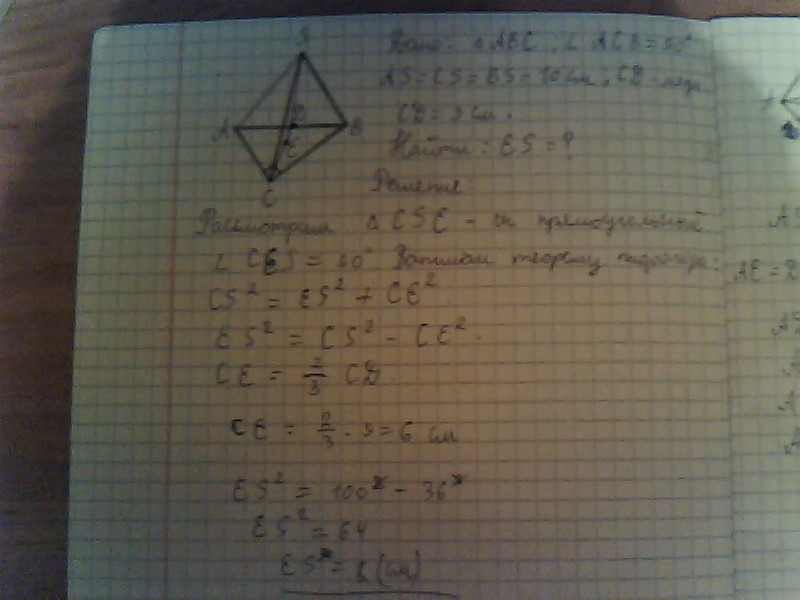 S
A
D
B
E
C
Дано: △ABC; ∠ACB = 90°
AS = CS = BS = 10 см, CD - мед.
CD = 9 см.
Найти: ES = ?
Решение:
Рассмотрим △CSE - он прямоугольный
∠CES = 90° Запишем теорему пифагора:
CS² = ES² + CE²
ES² = CS² - CE².
CE = 2/3 CD.
CE = 2/3 · 9 = 6 см
ES² = 100 - 36
ES² = 64
ES = 8 (см)
AE = 2